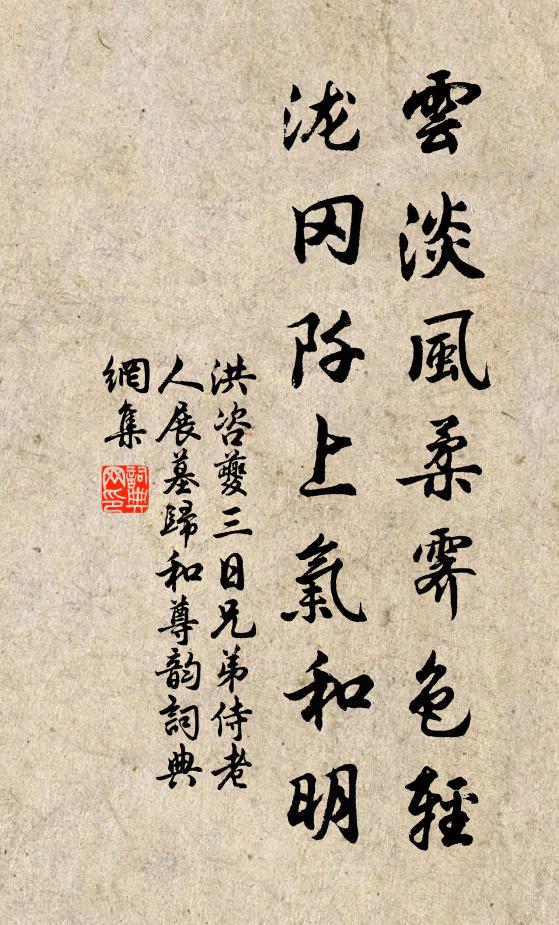 雲淡風柔霽色輕
泷冈阡上氣和明
洪咨夔三日兄弟侍老
人展墓歸和尊韵詞典
網集
詞典
网印